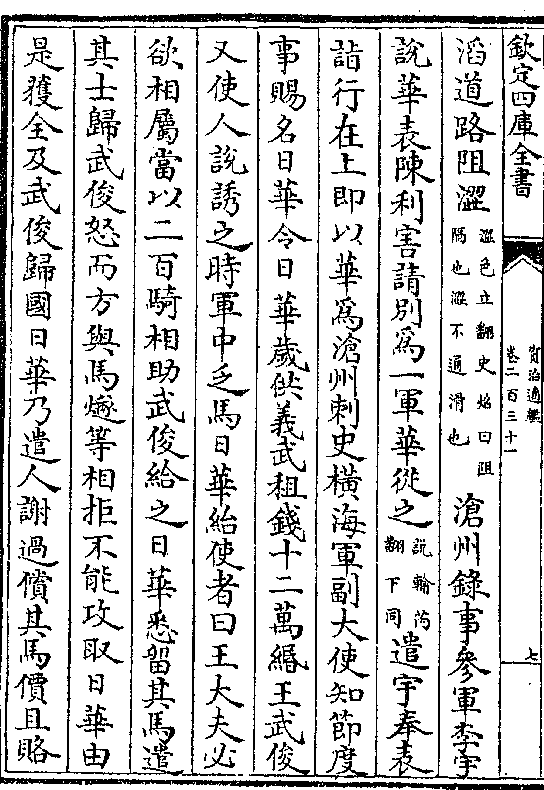 欽定四庫全書
資治通鑑
卷二百三十一
七
滔道路阻澀澀色立翻史炤曰阻
隔也澀不通滑也滄州錄事參軍李宇
說華表陳利害請別為一軍華從之說輸芮
翻下同遣宇奉表
詣行在上即以華為滄州刺史橫海軍副大使知節度
事賜名日華令日華歲供義武租錢十二萬緡王武俊
又使人說誘之時軍中乏馬日華紿使者曰王大夫必
欲相屬當以二百騎相助武俊給之日華悉留其馬遣
其士歸武俊怒而方與馬燧等相拒不能攻取日華由
是獲全及武俊歸國日華乃遣人謝過償其馬價且賂